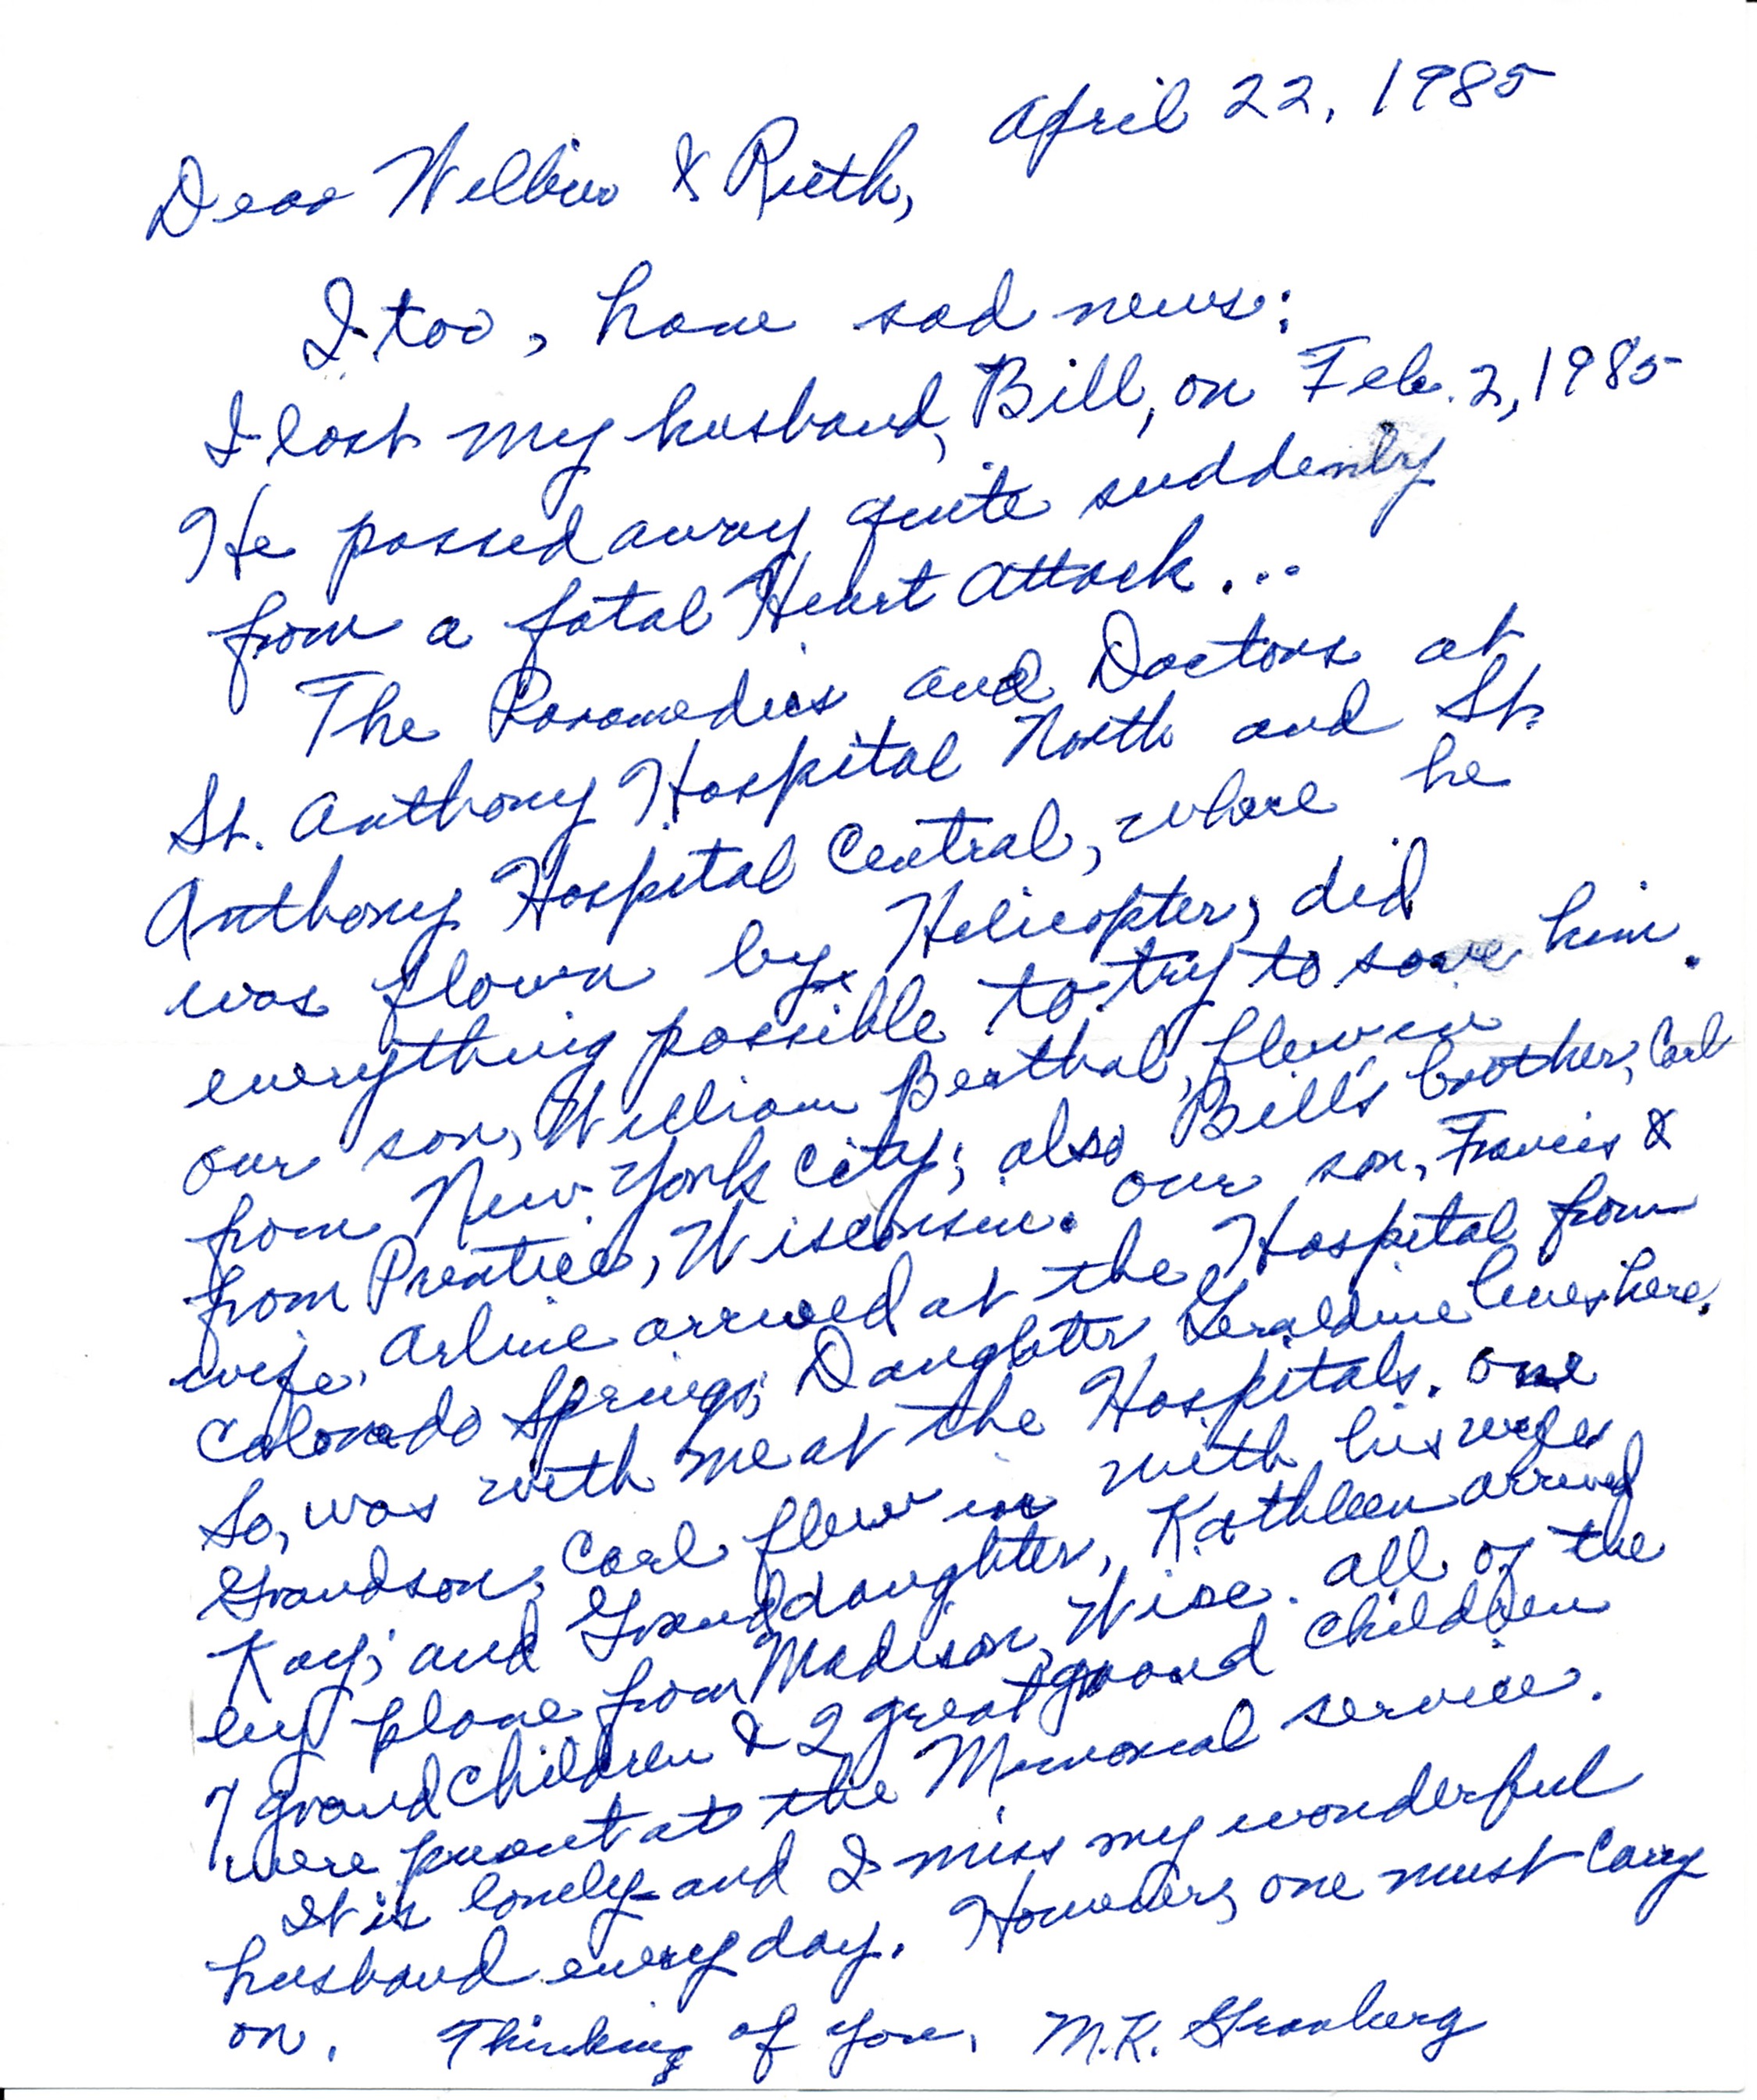 April 22, 1985
Dear Wilbur & Ruth,
I too, have sad news:
I lost my husband, Bill, on Feb. 2, 1985
He passed away quite suddenly
from a fatal Heart Attack...
The Paramedics and Doctors at
St. Anthony Hospital North and St.
Anthony Hospital Central, where he
was flown by Helicopter, did
everything possible to try to save him.
Our son, William Berthal, flew in
from New York City; also Bill's brother, Carl
from Prentice, Wisconsin. Our son, Francis &
wife, Arline arrived at the Hospital from
Colorado Springs; Daughter Geraldine lives here,
So, was with me at the Hospitals. One
Grandson, Carl flew in with his wife
Kay; and Granddaughter, Kathleen arrived
by plane from Madison, Wisc. All of the
7 grandchildren & 2 great grand children
were present at the Memorial service.
It is lonely and I miss my wonderful
husband everyday. However, one must carry
on. Thinking of you, M.K.